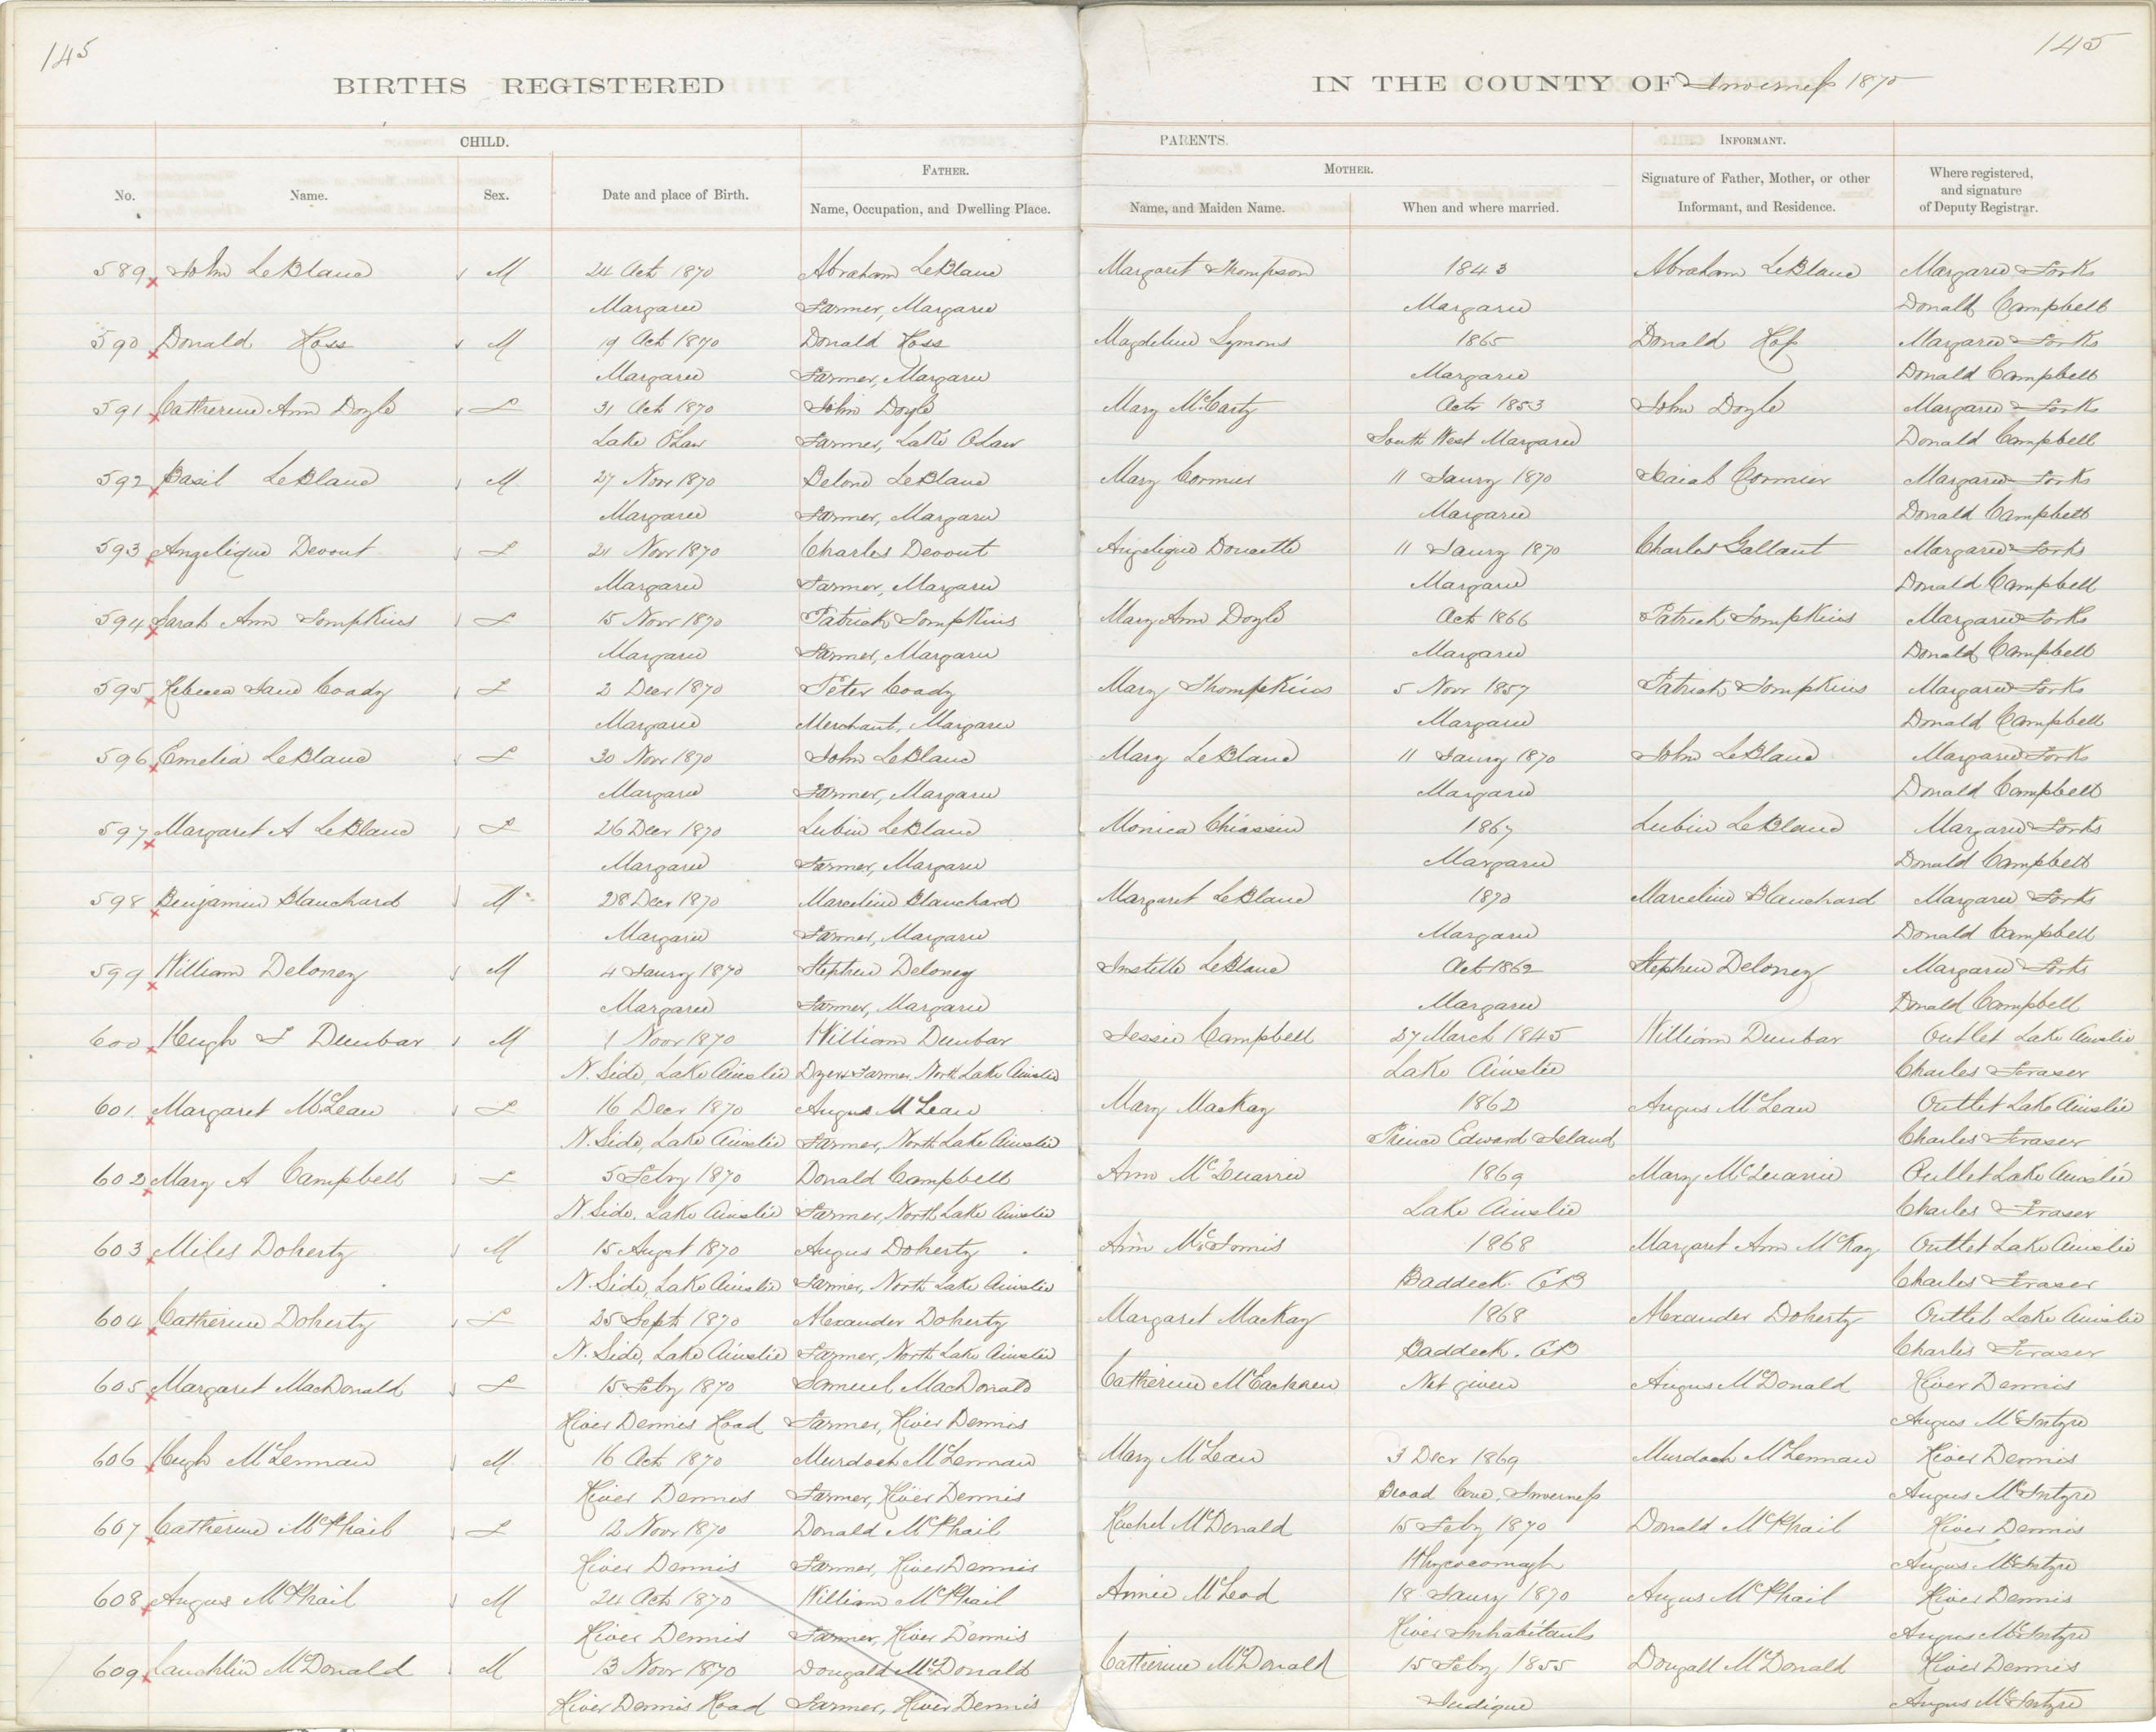 145
145
BIRTHS REGISTERED
IN THE COUNTY OF Inverness 1870
CHILD.
PARENTS.
INFORMANT.
No.
Name.
Sex.
Date and place of Birth.
FATHER.
Name, Occupation, and Dwelling Place.
MOTHER.
Name, and Maiden Name.
When and where married.
Signature of Father, Mother, or other
Informant, and Residence.
Where registered,
and signature
of Deputy Registrar.
589 John LeBlanc M 24 Oct 1870 Abraham LeBlanc Margaret Thompson 1843 Abraham LeBlanc Margaree Forks
Margaree Farmer, Margaree Margaree Donald Campbell
590 Donald Ross M 19 Oct 1870 Donald Ross Magdeline Symons 1865 Donald Ross Margaree Forks
Margaree Farmer, Margaree Margaree Donald Campbell
591 Catherine Ann Doyle F 31 Oct 1870 John Doyle Mary McCarty Octr 1853 John Doyle Margaree Forks
Lake O'Law Farmer, Lake O'Law South West Margaree Donald Campbell
592 Basil LeBlanc M 27 Novr 1870 Belone LeBlanc Mary Cormier 11 Jaury 1870 Isaiah Cormier Margaree Forks
Margaree Farmer, Margaree Margaree Donald Campbell
593 Angelique Devout F 21 Novr 1870 Charles Devout Angelique Doucette 11 Jaury 1870 Charles Gallant Margaree Forks
Margaree Farmer, Margaree Margaree Donald Campbell
594 Sarah Ann Tompkins F 15 Novr 1870 Patrick Tompkins Mary Ann Doyle Oct 1866 Patrick Tompkins Margaree Forks
Margaree Farmer, Margaree Margaree Donald Campbell
595 Rebecca Jane Coady F 2 Decr 1870 Peter Coady Mary Thompkins 5 Novr 1857 Patrick Tompkins Margaree Forks
Margaree Merchant, Margaree Margaree Donald Campbell
596 Emelia LeBlanc F 30 Novr 1870 John LeBlanc Mary LeBlanc 11 Jaury 1870 John LeBlanc Margaree Forks
Margaree Farmer, Margaree Margaree Donald Campbell
597 Margaret A LeBlanc F 26 Decr 1870 Lubin LeBlanc Monica Chiassin 1867 Lubin LeBlanc Margaree Forks
Margaree Farmer, Margaree Margaree Donald Campbell
598 Benjamin Blanchard M 28 Decr 1870 Marceline Blanchard Margaret LeBlanc 1870 Marceline Blanchard Margaree Forks
Margaree Farmer, Margaree Margaree Donald Campbell
599 William Deloney M 4 Jaury 1870 Stephen Deloney LeBlanc Oct 1862 Stephen Deloney Margaree Forks
Margaree Farmer, Margaree Margaree Donald Campbell
600 Hugh F Dunbar M 1 Novr 1870 William Dunbar Jessie Campbell 27 March 1845 William Dunbar Outlet Lake Ainslie
N. Side, Lake Ainslie Dyer & Farmer, North Lake Ainslie Lake Ainslie Charles Fraser
601 Margaret McLean F 16 Decr 1870 Angus McLean Mary MacKay 1862 Angus McLean Outlet Lake Ainslie
N. Side, Lake Ainslie Farmer, North Lake Ainslie Prince Edward Island Charles Fraser
602 Mary A Campbell F 5 Feby 1870 Donald Campbell Ann McQuarrie 1869 Mary McQuarrie Outlet Lake Ainslie
N. Side. Lake Ainslie Farmer, North Lake Ainslie Lake Ainslie Charles Fraser
603 Miles Doherty M 15 Augst 1870 Angus Doherty Ann McInnis 1868 Margaret Ann McKay Outlet Lake Ainslie
N. Side, Lake Ainslie Farmer, North Lake Ainslie Baddeck. CB Charles Fraser
604 Catherine Doherty F 25 Sept 1870 Alexander Doherty Margaret MacKay 1868 Alexander Doherty Outlet Lake Ainslie
N. Side, Lake Ainslie Farmer, North Lake Ainslie Baddeck. CB Charles Fraser
605 Margaret MacDonald F 15 Feby 1870 Samuel MacDonald Catherine McEachren Not given Angus McDonald River Dennis
River Dennis Road Farmer, River Dennis Angus McIntyre
606 Hugh McLennan M 16 Oct 1870 Murdoch McLennan Mary McLean 3 Decr 1869 Murdoch McLennan River Dennis
River Dennis Farmer, River Dennis Broad Cove, Inverness Angus McIntyre
607 Catherine McPhail F 12 Novr 1870 Donald McPhail Rachel McDonald 15 Feby 1870 Donald McPhail River Dennis
River Dennis Farmer, River Dennis Whycocomagh Angus McIntyre
608 Angus McPhail M 24 Oct 1870 William McPhail Annie McLeod 18 Jaury 1870 Angus McPhail River Dennis
River Dennis Farmer, River Dennis River Inhabitants Angus McIntyre
609 Lauchlin McDonald M 13 Novr 1870 Dougald McDonald Catherine McDonald 15 Feby 1855 Dougall McDonald River Dennis
River Dennis Road Farmer, River Dennis Judique Angus McIntyre